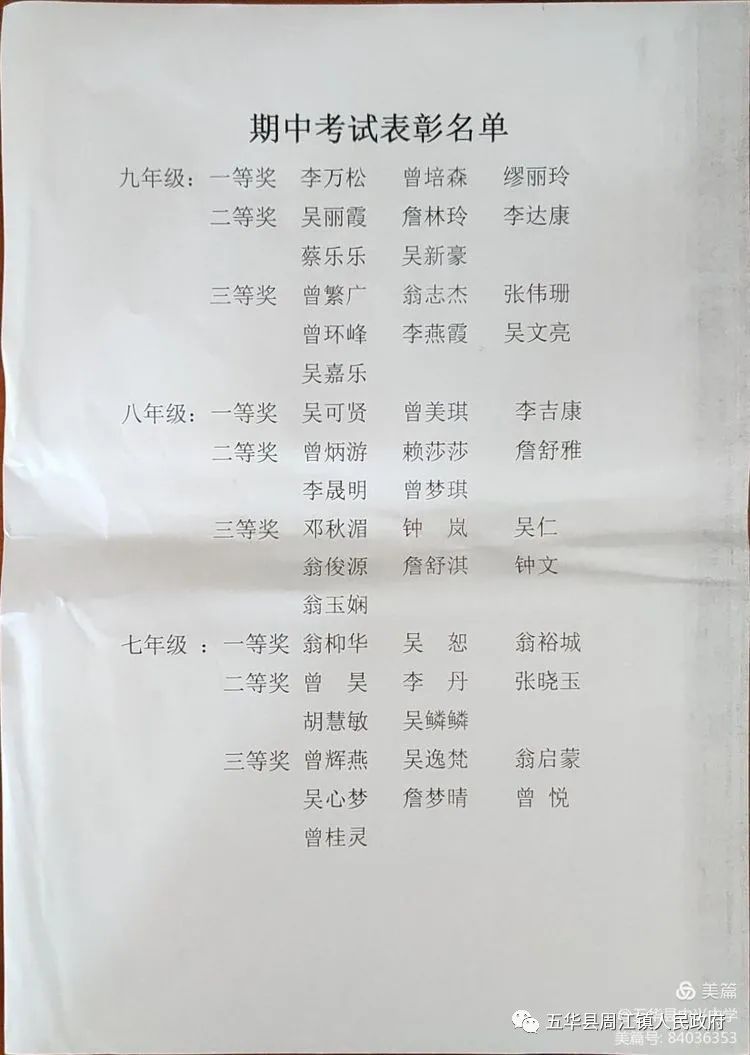 期中考试表彰名单
九年级：一等奖 李万松 曾培森 缪丽玲
二等奖 吴丽霞 詹林玲 李达康
蔡乐乐 吴新豪
三等奖 曾繁广 翁志杰 张伟珊
曾环峰 李燕霞 吴文亮
吴嘉乐
八年级：一等奖 吴可贤 曾美琪 李吉康
二等奖 曾炳游 赖莎莎 詹舒雅
李晟明 曾梦琪
三等奖 邓秋湄 钟 岚 吴仁
翁俊源 詹舒淇 钟文
翁玉娴
七年级：一等奖 翁柳华 吴 恕 翁裕城
二等奖 曾 昊 李 丹 张晓玉
胡慧敏 吴鳞鳞
三等奖 曾辉燕 吴逸梵 翁启蒙
吴心梦 詹梦晴 曾 悦
曾桂灵
美篇
五华县周江镇人民政府
美篇号: 84036353